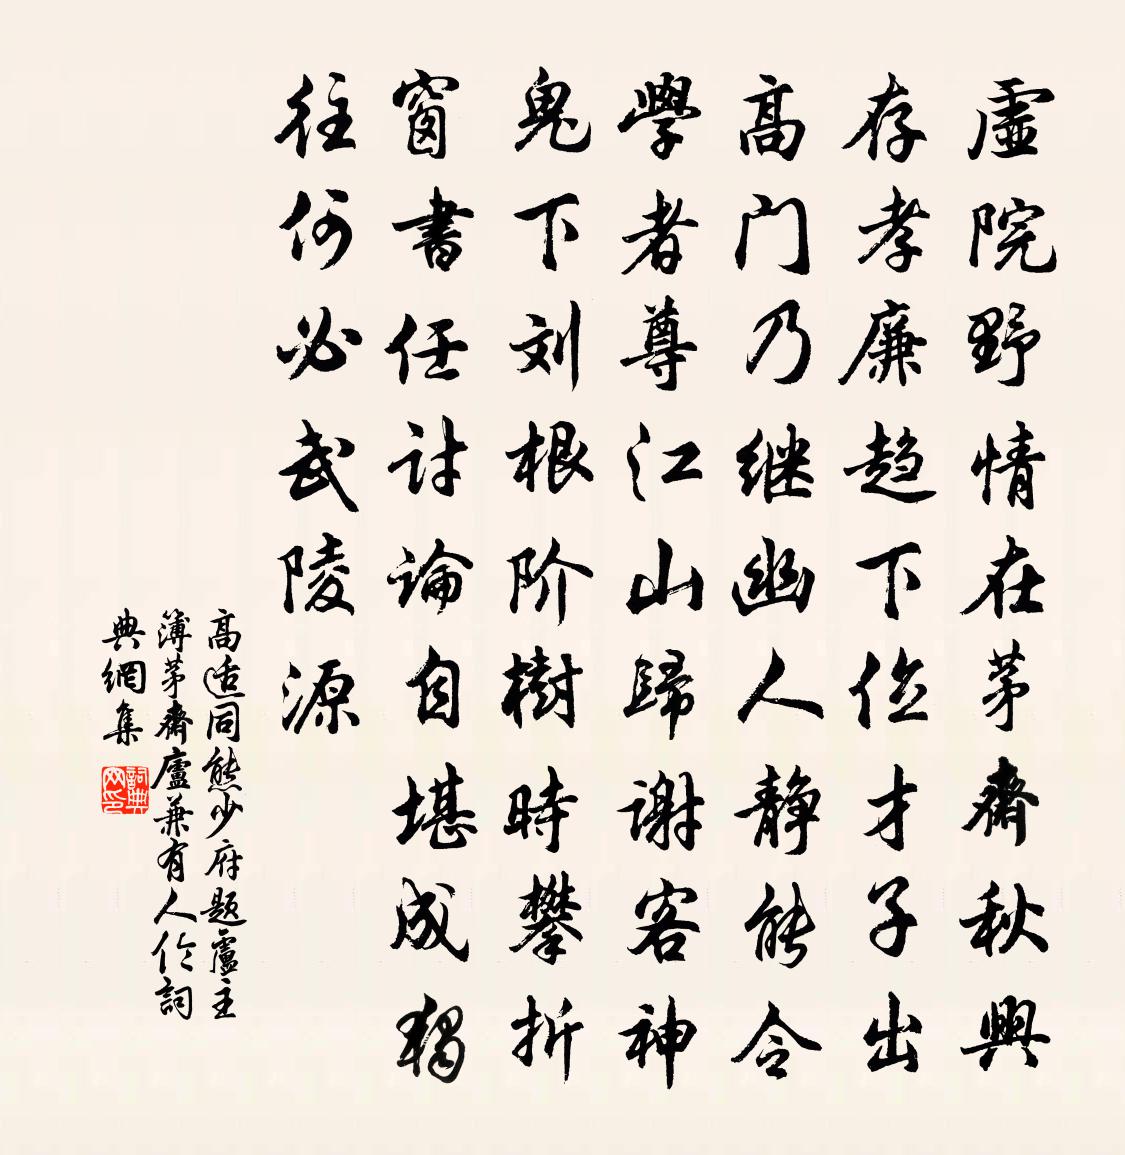 虛院野情在茅齋秋興
存孝廉趋下位才子出
高门乃继幽人静能令
學者尊江山歸谢客神
鬼下刘根阶樹時攀折
窗書任討論自堪成獨
往何必武陵源
高适同熊少府题盧主
簿茅齋盧兼有人伦詞
典網集
詞典网印